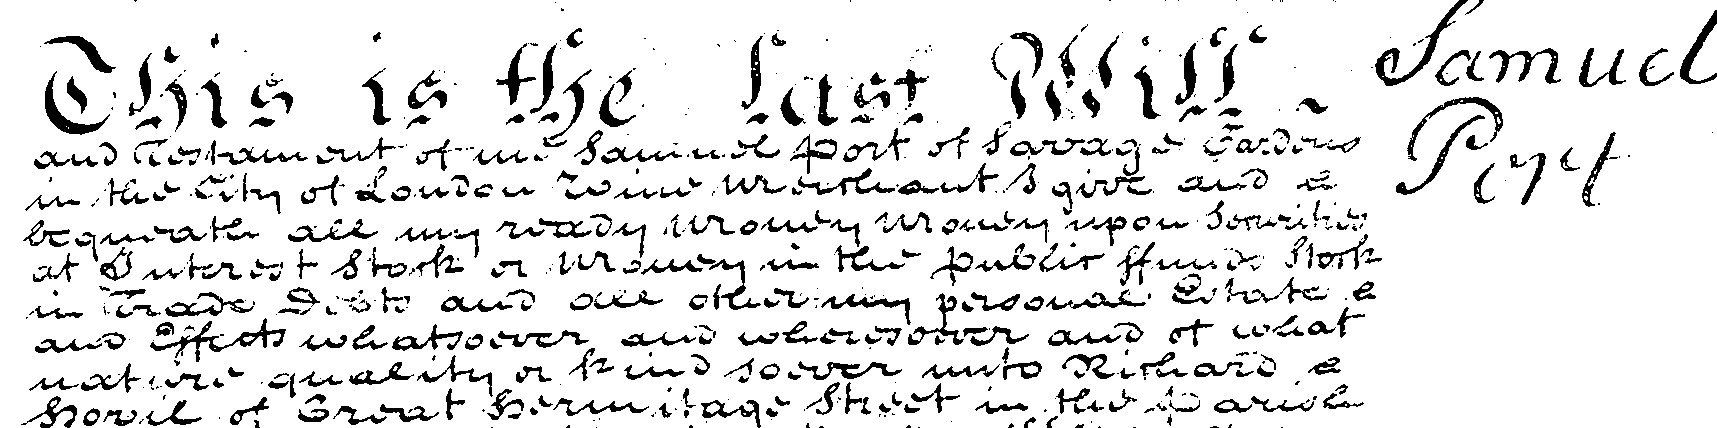 This is the last Will
Samuel
Port
and Testament of me Samuel Port of Savage Gardens
in the City of London Wine Merchant I give and
bequeath all my ready Money Money upon Securities
at Interest Stock or Money in the public ffunds Stock
in Trade Debts and all other my personal Estate
and Effects whatsoever and wheresoever and of what
nature quality or kind soever unto Richard
Hovil of Great Hermitage Street in the Parish